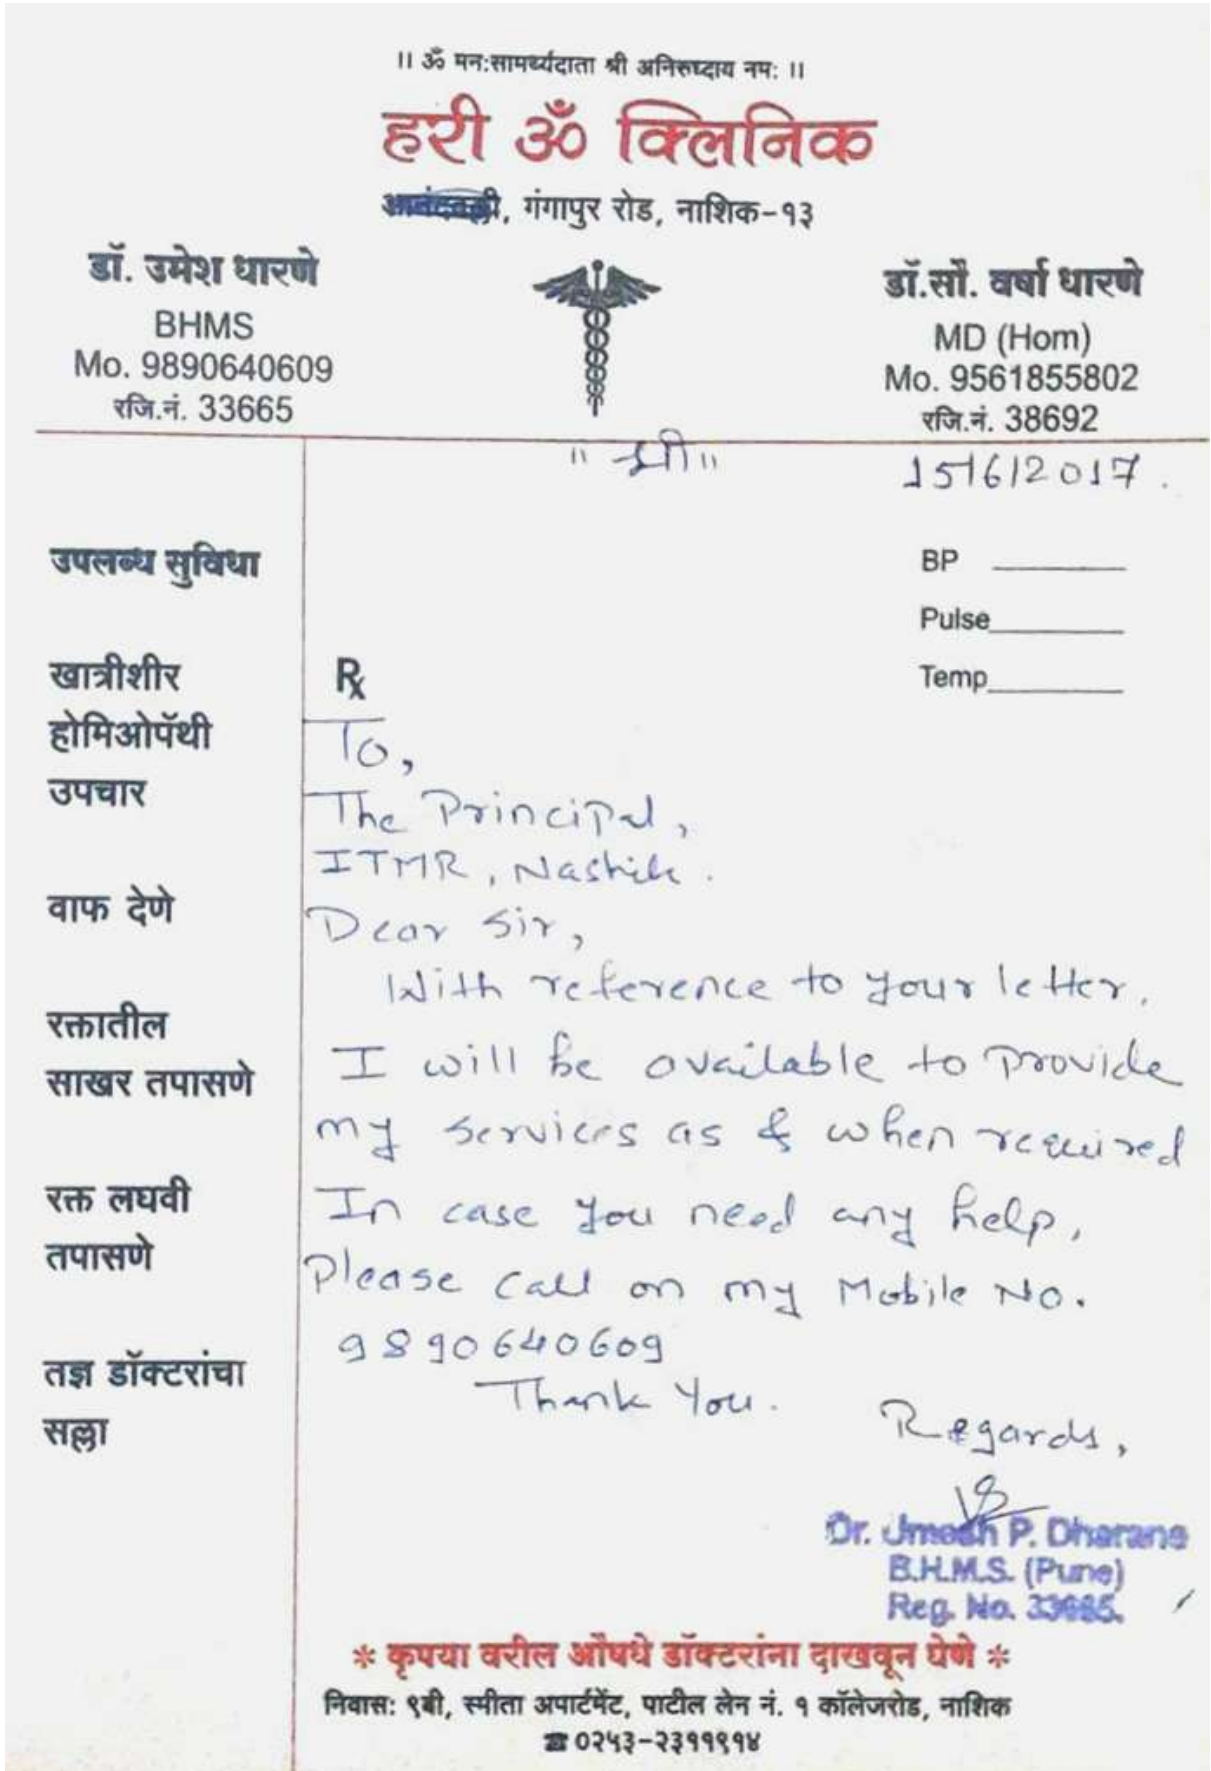 ॥ ॐ मन:सामर्थ्यदाता श्री अनिरुध्दाय नम: ॥
हरी ॐ क्लिनिक
आनंदवल्ली, गंगापुर रोड, नाशिक-१३
डॉ. उमेश धारणे
BHMS
Mo. 9890640609
रजि.नं. 33665
डॉ.सौ. वर्षा धारणे
MD (Hom)
Mo. 9561855802
रजि.नं. 38692
॥ श्री ॥
15/6/2017.
BP
Pulse
Temp
उपलब्ध सुविधा
खात्रीशीर
होमिओपॅथी
उपचार
वाफ देणे
रक्तातील
साखर तपासणे
रक्त लघवी
तपासणे
तज्ञ डॉक्टरांचा
सल्ला
℞
To,
The Principal,
ITMR, Nashik.
Dear Sir,
With reference to your letter,
I will be available to provide
my services as & when required
In case you need any help,
Please call on my Mobile No.
9890640609
Thank You.
Regards,
Dr. Umesh P. Dharane
B.H.M.S. (Pune)
Reg. No. 33665.
* कृपया वरील औषधे डॉक्टरांना दाखवून घेणे *
निवास: ९बी, स्मीता अपार्टमेंट, पाटील लेन नं. १ कॉलेजरोड, नाशिक
☎ ०२५३-२३११९१४